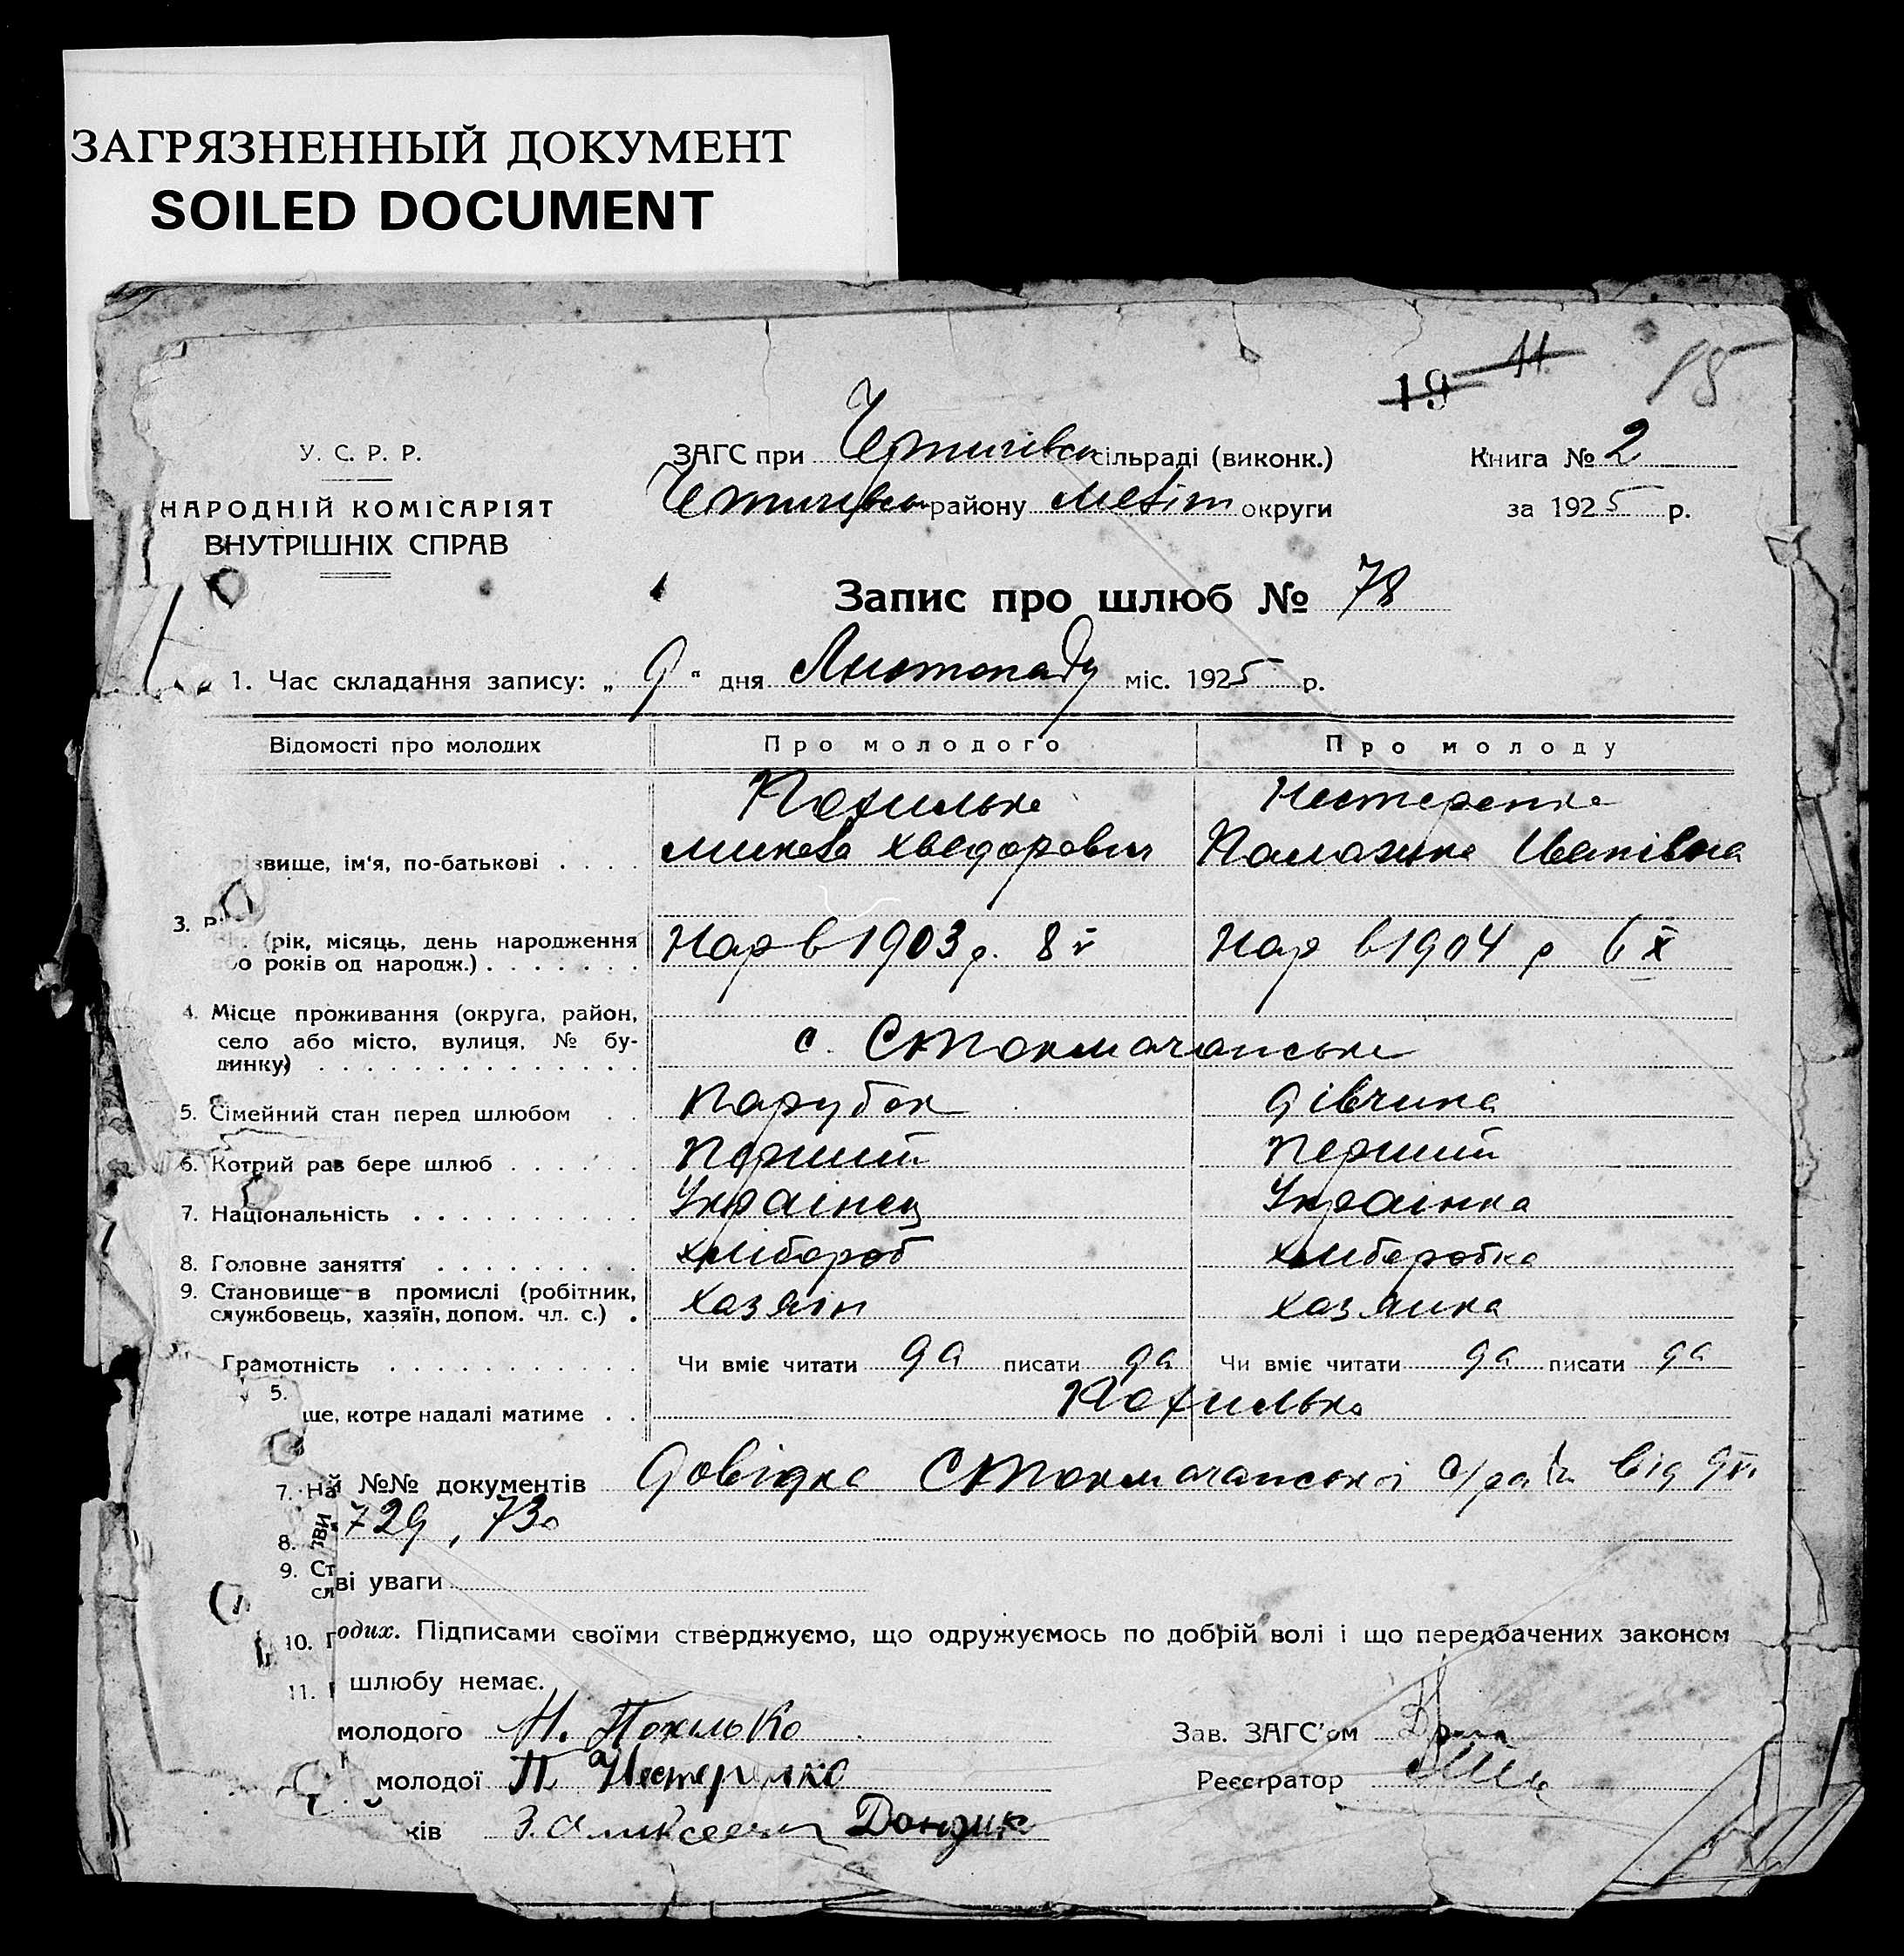 ЗАГРЯЗНЕННЫЙ ДОКУМЕНТ
SOILED DOCUMENT
19 11. 15
У. С. Р. Р.
НАРОДНІЙ КОМІСАРІЯТ
ВНУТРІШНІХ СПРАВ
ЗАГС при сільраді (виконк.)
району округи
Книга № 2
за 1925 р.
Запис про шлюб № 78
1. Час складання запису: „ 9 " дня Листопаду міс. 1925 р.
Відомості про молодих Про молодого Про молоду
Похилько Нестеренко
звище, ім'я, по-батькові . . . . Микола Хведорович Палажка Іванівна
3.
(рік, місяць, день народження
бо років од народж.) . . . . . . . Нар в 1903 р. 8 V Нар в 1904 р 6 X
4. Місце проживання (округа, район,
село або місто, вулиця, № бу-
динку) . . . . . . . . . . . . . . с.
5. Сімейний стан перед шлюбом . . Парубок дівчина
6. Котрий раз бере шлюб . . . . . . Перший Перший
7. Національність . . . . . . . . . . Українец Українка
8. Головне заняття . . . . . . . . . хлібороб хліборобка
9. Становище в промислі (робітник,
службовець, хазяїн, допом. чл. с.) . хазяін хазяйка
Грамотність . . . . . . . . . . . Чи вміє читати да писати да Чи вміє читати да писати да
5.
ще, котре надалі матиме . . Похилько
7. На №№ документів Довідка с/ради від
8. зви 729, 730
9. Ст
сл ві уваги
10. Г одих. Підписами своїми стверджуємо, що одружуємось по добрій волі і що передбачених законом
11. шлюбу немає.
молодого М. Похилько Зав. ЗАГС'ом
молодої П Нестеренко Реєстратор
ків